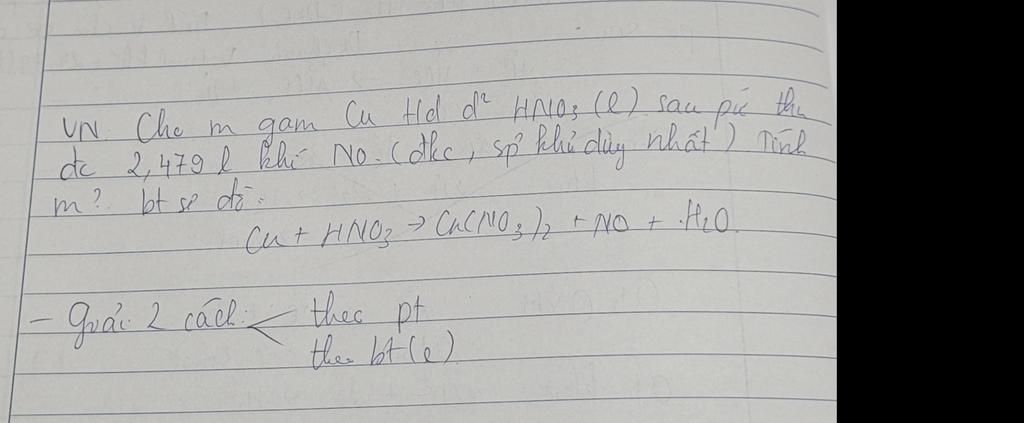 VN. Cho m gam Cu t/d d² HNO₃ (l) sau pứ thu
đc 2,479 l khí NO. (đkc, sp² khử duy nhất) Tính
m? bt sơ đồ:
Cu + HNO₃ → Cu(NO₃)₂ + NO + H₂O.
- Giải 2 cách: < theo pt
theo bt(e)